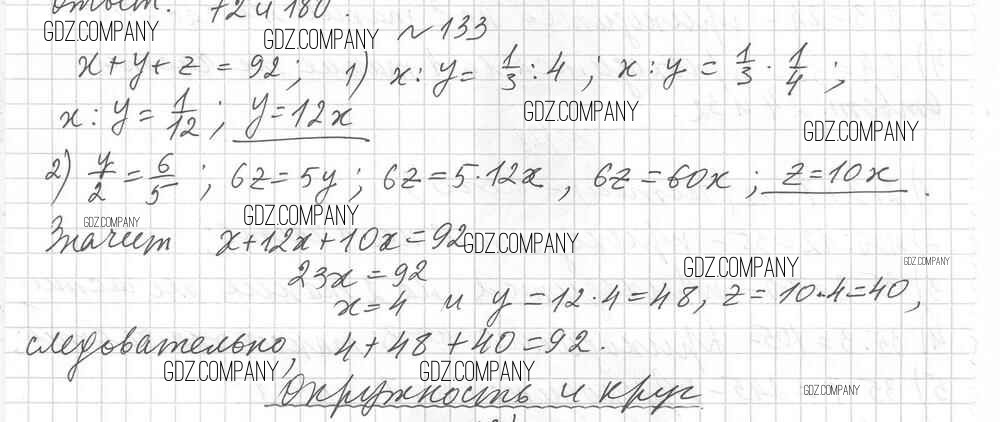 Ответ. 72 и 180.
GDZ.COMPANY GDZ.COMPANY №133
x+y+z=92; 1) x:y=1/3:4; x:y=1/3·1/4;
GDZ.COMPANY
x:y=1/12; y=12x
GDZ.COMPANY
2) y/2=6/5; 6z=5y; 6z=5·12x, 6z=60x; z=10x.
GDZ.COMPANY GDZ.COMPANY
Значит x+12x+10x=92
GDZ.COMPANY GDZ.COMPANY
23x=92
GDZ.COMPANY
x=4 и y=12·4=48, z=10·4=40,
следовательно, 4+48+40=92.
GDZ.COMPANY GDZ.COMPANY
Окружность и круг
GDZ.COMPANY